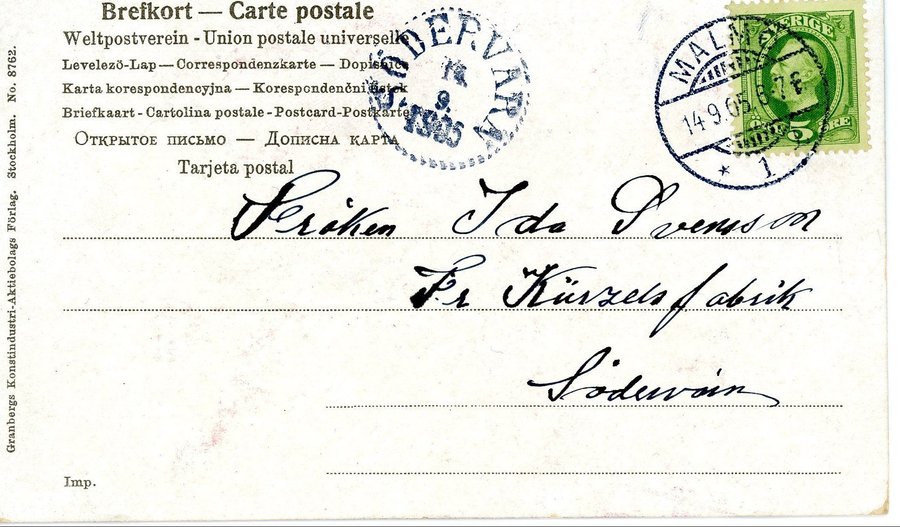 Brefkort — Carte postale
Weltpostverein - Union postale universelle
Levelezö-Lap — Correspondenzkarte — Dopisnice
Karta korespondencyjna — Korespondenční lístek
Briefkaart - Cartolina postale - Postcard-Postkarte
Открытое письмо — Дописна карта
Tarjeta postal
SÖDERVÄRN
14
9
1905
MALMÖ
14.9.05.6-7 F
* 1
SVERIGE
5 ÖRE
Fröken Ida Svensson
Fr Kürzels fabrik
Södervärn
Imp.
Granbergs Konstindustri-Aktiebolags Förlag. Stockholm. No. 8762.